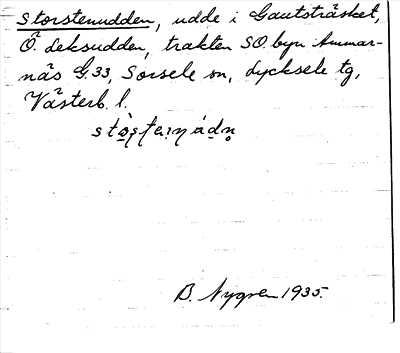 Storstenudden, udde i Gautsträsket,
Ö. Leksudden, trakten SO. byn Ammar-
näs G.33, Sorsele sn, Lycksele tg,
Västerb. l.
B. Nygren 1935.